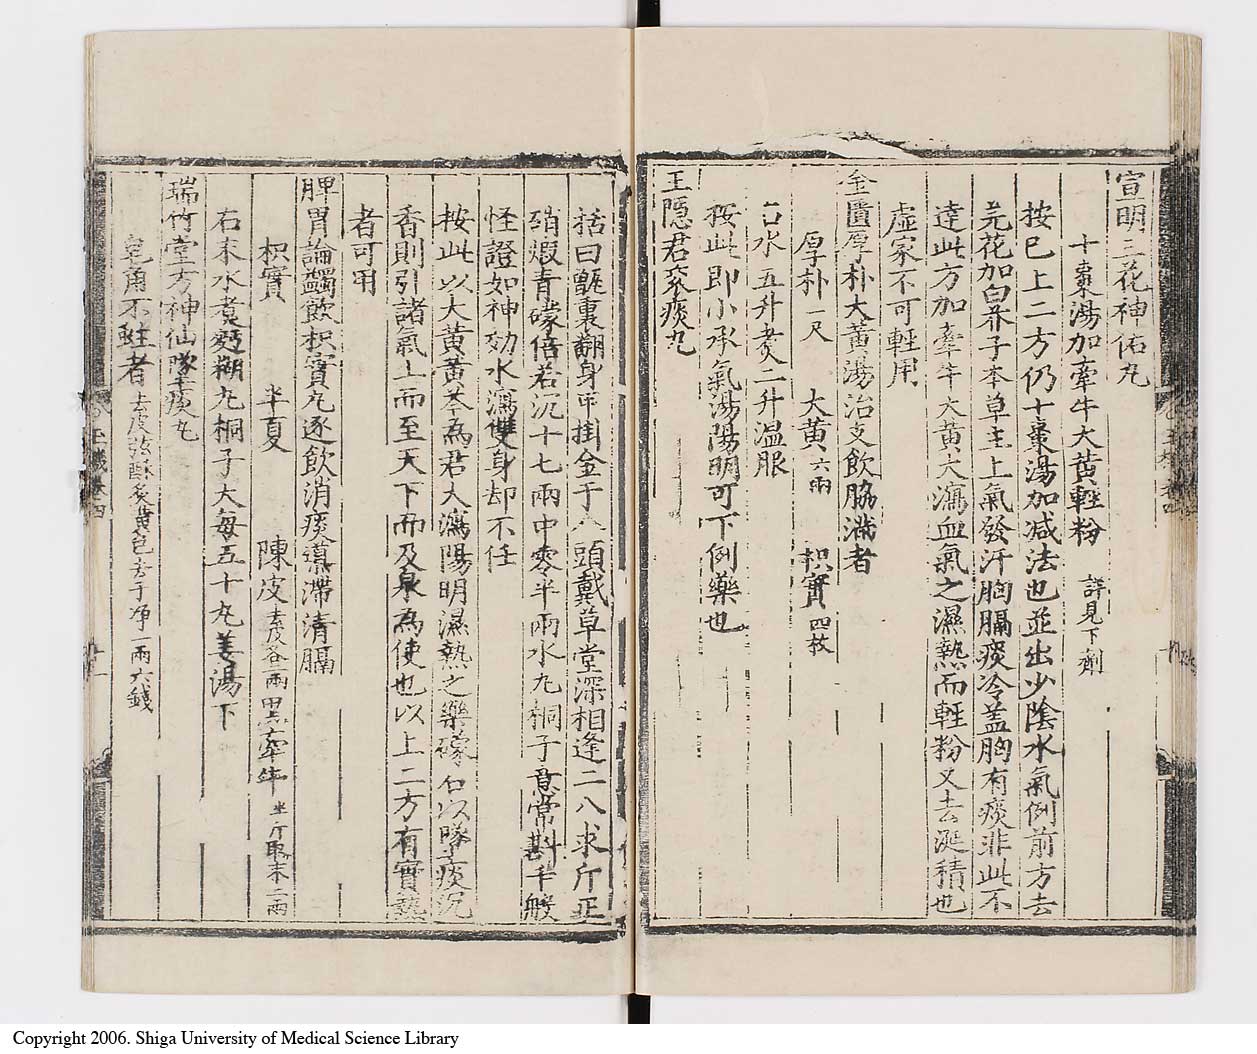 宣明三花神佑丸
十棗湯加牽牛大黄輕粉 詳見下劑
按已上二方仍十棗湯加减法也並出少陰水氣例前方去
芫花加白芥子本草主上氣發汗胸膈痰冷盖胸有痰非此不
達此方加牽牛大黄大瀉血氣之濕熱而輕粉又去涎積也
虚家不可輕用
金匱厚朴大黄湯治支飲胸滿者
厚朴一尺 大黄六兩 枳實四枚
右水五升煑二升温服
按此即小承氣湯陽明可下例藥也
王隱君滚痰丸
括曰甑裏翻身甲掛金于今頭戴草堂深相逢二八求斤正
硝煅青礞倍若沉十七兩中零半兩水丸桐子意常斟千般
怪證如神効水瀉雙身却不任
按此以大黄黄芩為君大瀉陽明濕熱之藥礞石以墜痰沉
香則引諸氣上而至天下而及泉為使也以上二方有實熱
者可用
脾胃論蠲飲枳實丸逐飲消痰導滯清膈
枳實 半夏 陳皮去皮各二兩 黑牽牛半斤取末三兩
右末水煮麪糊丸桐子大每五十丸姜湯下
瑞竹堂方神仙墜痰丸
皂角不蛀者去皮弦酥炙黄色去子净一兩六錢
玉機卷四